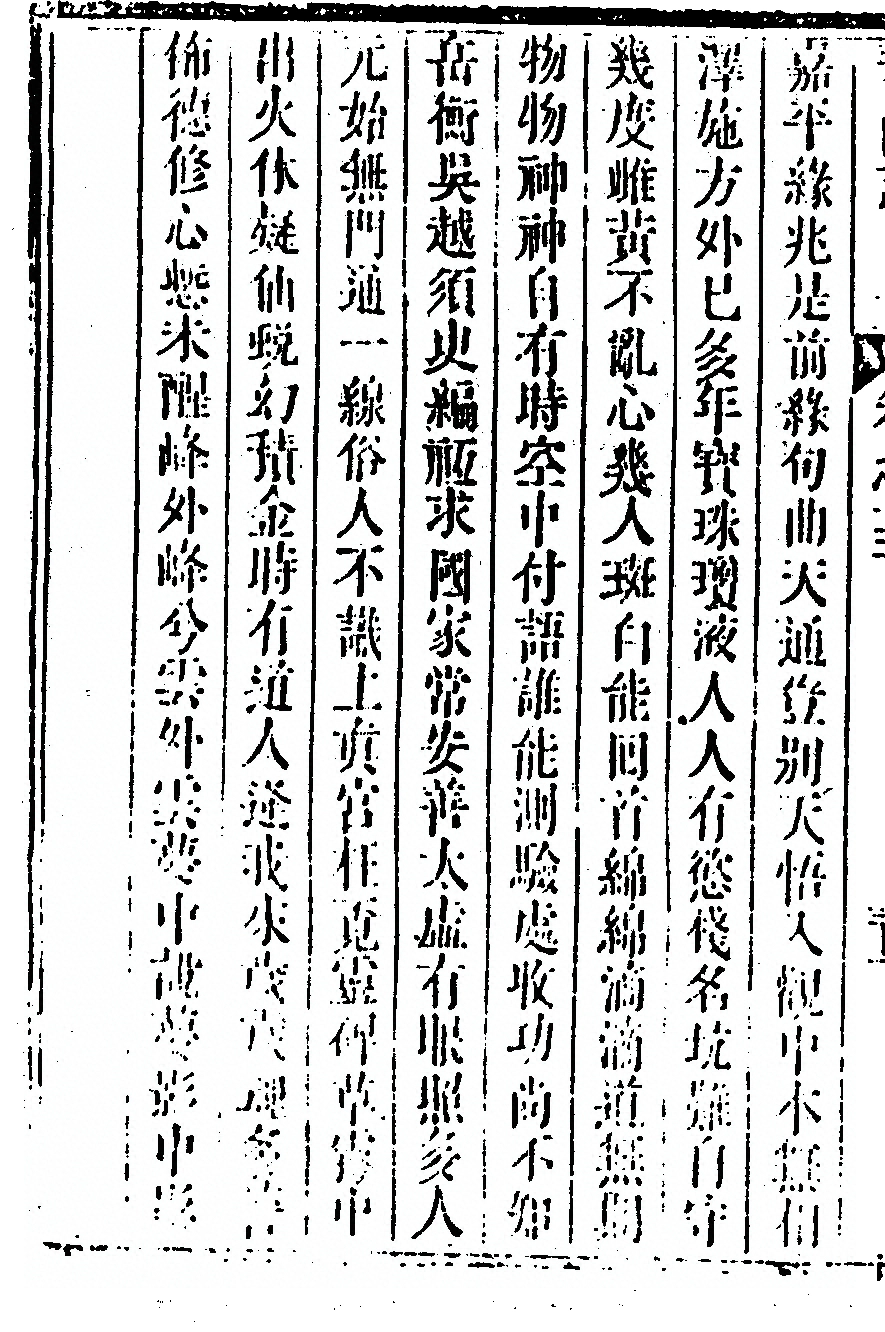 嘉平緣兆是前緣句曲天通豈別天悟入觀中本無相
澤施方外已多年寶珠瓊液人人有慾棧名坑難自守
幾度雌黃不亂心幾人斑白能回首綿綿滴滴道無間
物物神神自有時空中付語誰能測驗處收功尚不知
岳衡吳越須臾縮瓶求國家常安善太虛有眼照多人
元始無門通一線俗人不識上真宮枉覓靈碑草棘中
出火休疑仙蛻幻積金時有道人逢或來茂
佈德修心愁未醒峰外峰兮雲外雲夢中說夢影中影